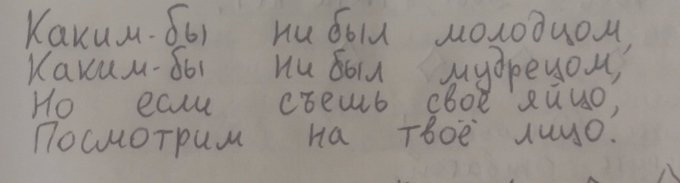 Каким-бы ни был молодцом,
Каким-бы ни был мудрецом,
Но если съешь своё яйцо,
Посмотрим на твоё лицо.